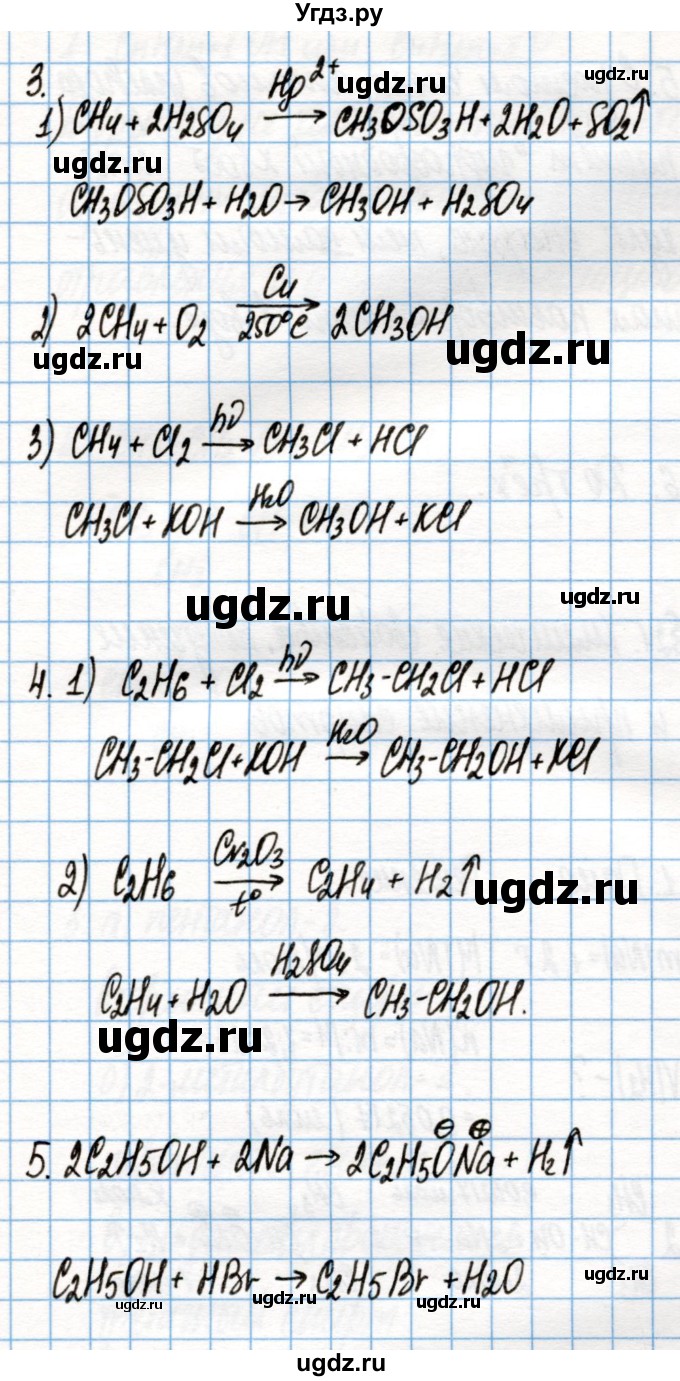 Угдз.ру
Hg²⁺
ugdz.ru
ugdz.ru
3.
1) CH4 + 2H2SO4 → CH3OSO3H + 2H2O + SO2↑
ugdz.ru
CH3OSO3H + H2O → CH3OH + H2SO4
Cu
2) 2CH4 + O2 → 2CH3OH
250°C
ugdz.ru
ugdz.ru
hν
3) CH4 + Cl2 → CH3Cl + HCl
H2O
CH3Cl + KOH → CH3OH + KCl
ugdz.ru
ugdz.ru
hν
4. 1) C2H6 + Cl2 → CH3-CH2Cl + HCl
H2O
CH3-CH2Cl + KOH → CH3-CH2OH + KCl
Cr2O3
2) C2H6 → C2H4 + H2↑
t°
ugdz.ru
H2SO4
C2H4 + H2O → CH3-CH2OH.
ugdz.ru
⊖ ⊕
5. 2C2H5OH + 2Na → 2C2H5ONa + H2↑
C2H5OH + HBr → C2H5Br + H2O
ugdz.ru
ugdz.ru
ugdz.ru
ugdz.ru
ugdz.ru